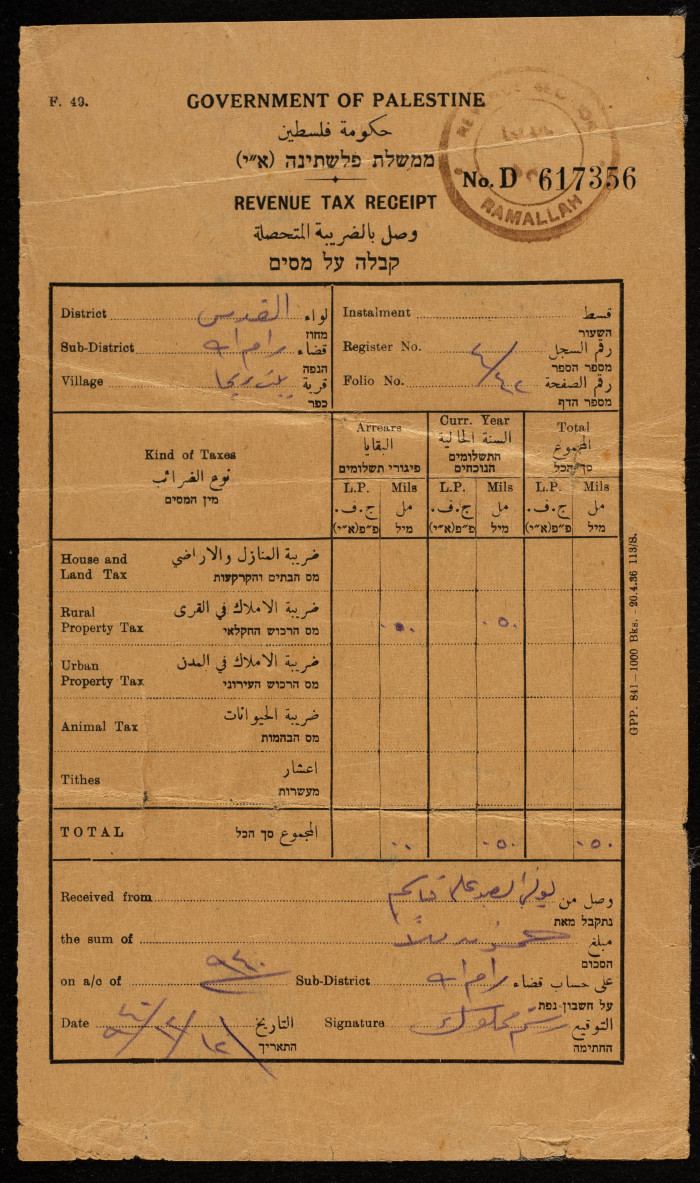 F. 49.
GOVERNMENT OF PALESTINE
حكومة فلسطين
ממשלת פלשתינה (א״י)
No. D 617356
RAMALLAH
REVENUE TAX RECEIPT
وصل بالضريبة المتحصلة
קבלה על מסים
District القدس لواء
מחוז
Sub-District رام الله قضاء
הנפה
Village قرية
כפר
Instalment قسط
השעור
Register No. رقم السجل
מספר הספר
Folio No. رقم الصفحة
מספר הדף
Kind of Taxes
نوع الضرائب
מין המסים
Arrears
البقايا
פיגורי תשלומים
Curr. Year
السنة الحالية
התשלומים הנוכחים
Total
المجموع
סך הכל
L.P. Mils L.P. Mils L.P. Mils
ج.ف. مل ج.ف. مل ج.ف. مل
פ״פ(א״י) מיל פ״פ(א״י) מיל פ״פ(א״י) מיל
House and Land Tax ضريبة المنازل والاراضي
מס הבתים והקרקעות
Rural Property Tax ضريبة الاملاك في القرى
מס הרכוש החקלאי
٠٥٠
Urban Property Tax ضريبة الاملاك في المدن
מס הרכוש העירוני
Animal Tax ضريبة الحيوانات
מס הבהמות
Tithes اعشار
מעשרות
TOTAL المجموع סך הכל
٠٥٠ ٠٥٠
Received from وصل من
נתקבל מאת
the sum of مبلغ
הסכום
on a/c of Sub-District رام الله على حساب قضاء
על חשבון נפת
Date التاريخ
התאריך
Signature التوقيع
החתימה
GPP. 841—1000 Bks. - 20.4.36 113/S.